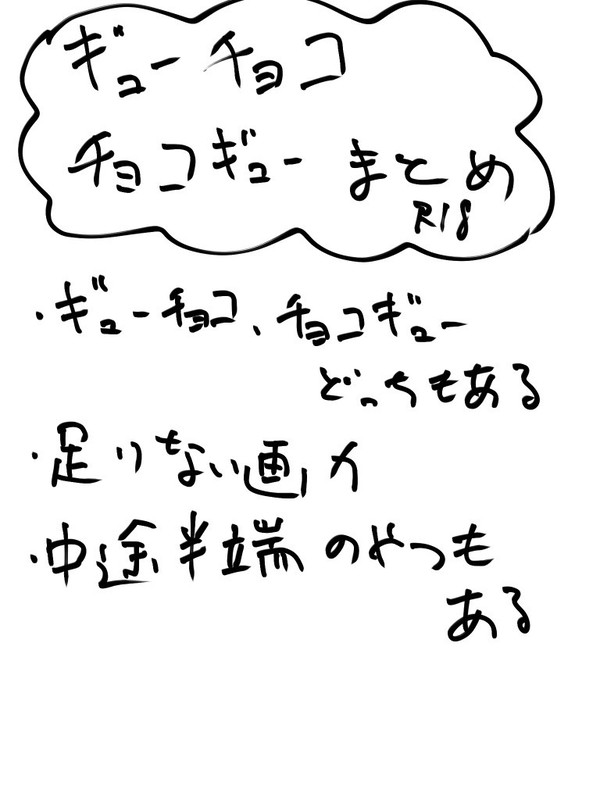 ギューチョコ
チョコギュー まとめ
R18
・ギューチョコ、チョコギュー
どっちもある
・足りない画力
・中途半端のやつも
ある